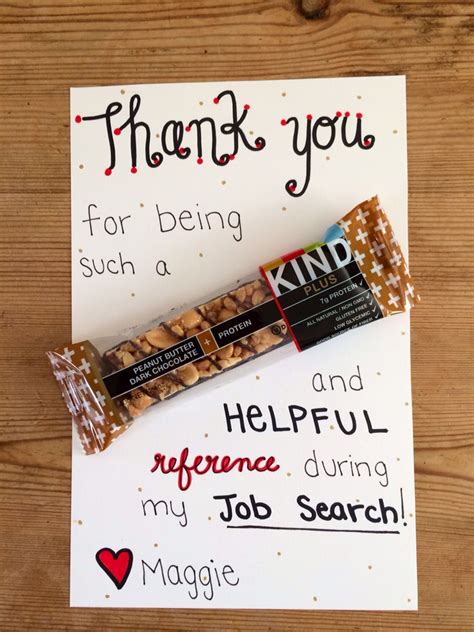 Thank you
for being
such a
KIND
PLUS
7g PROTEIN
ALL NATURAL / NON GMO
GLUTEN FREE
LOW GLYCEMIC
PEANUT BUTTER
DARK CHOCOLATE
+ PROTEIN
and
HELPFUL
reference during
my Job Search!
Maggie